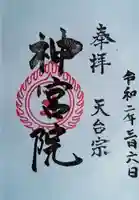 奉拝
天台宗
神宮院
令和二年三月六日